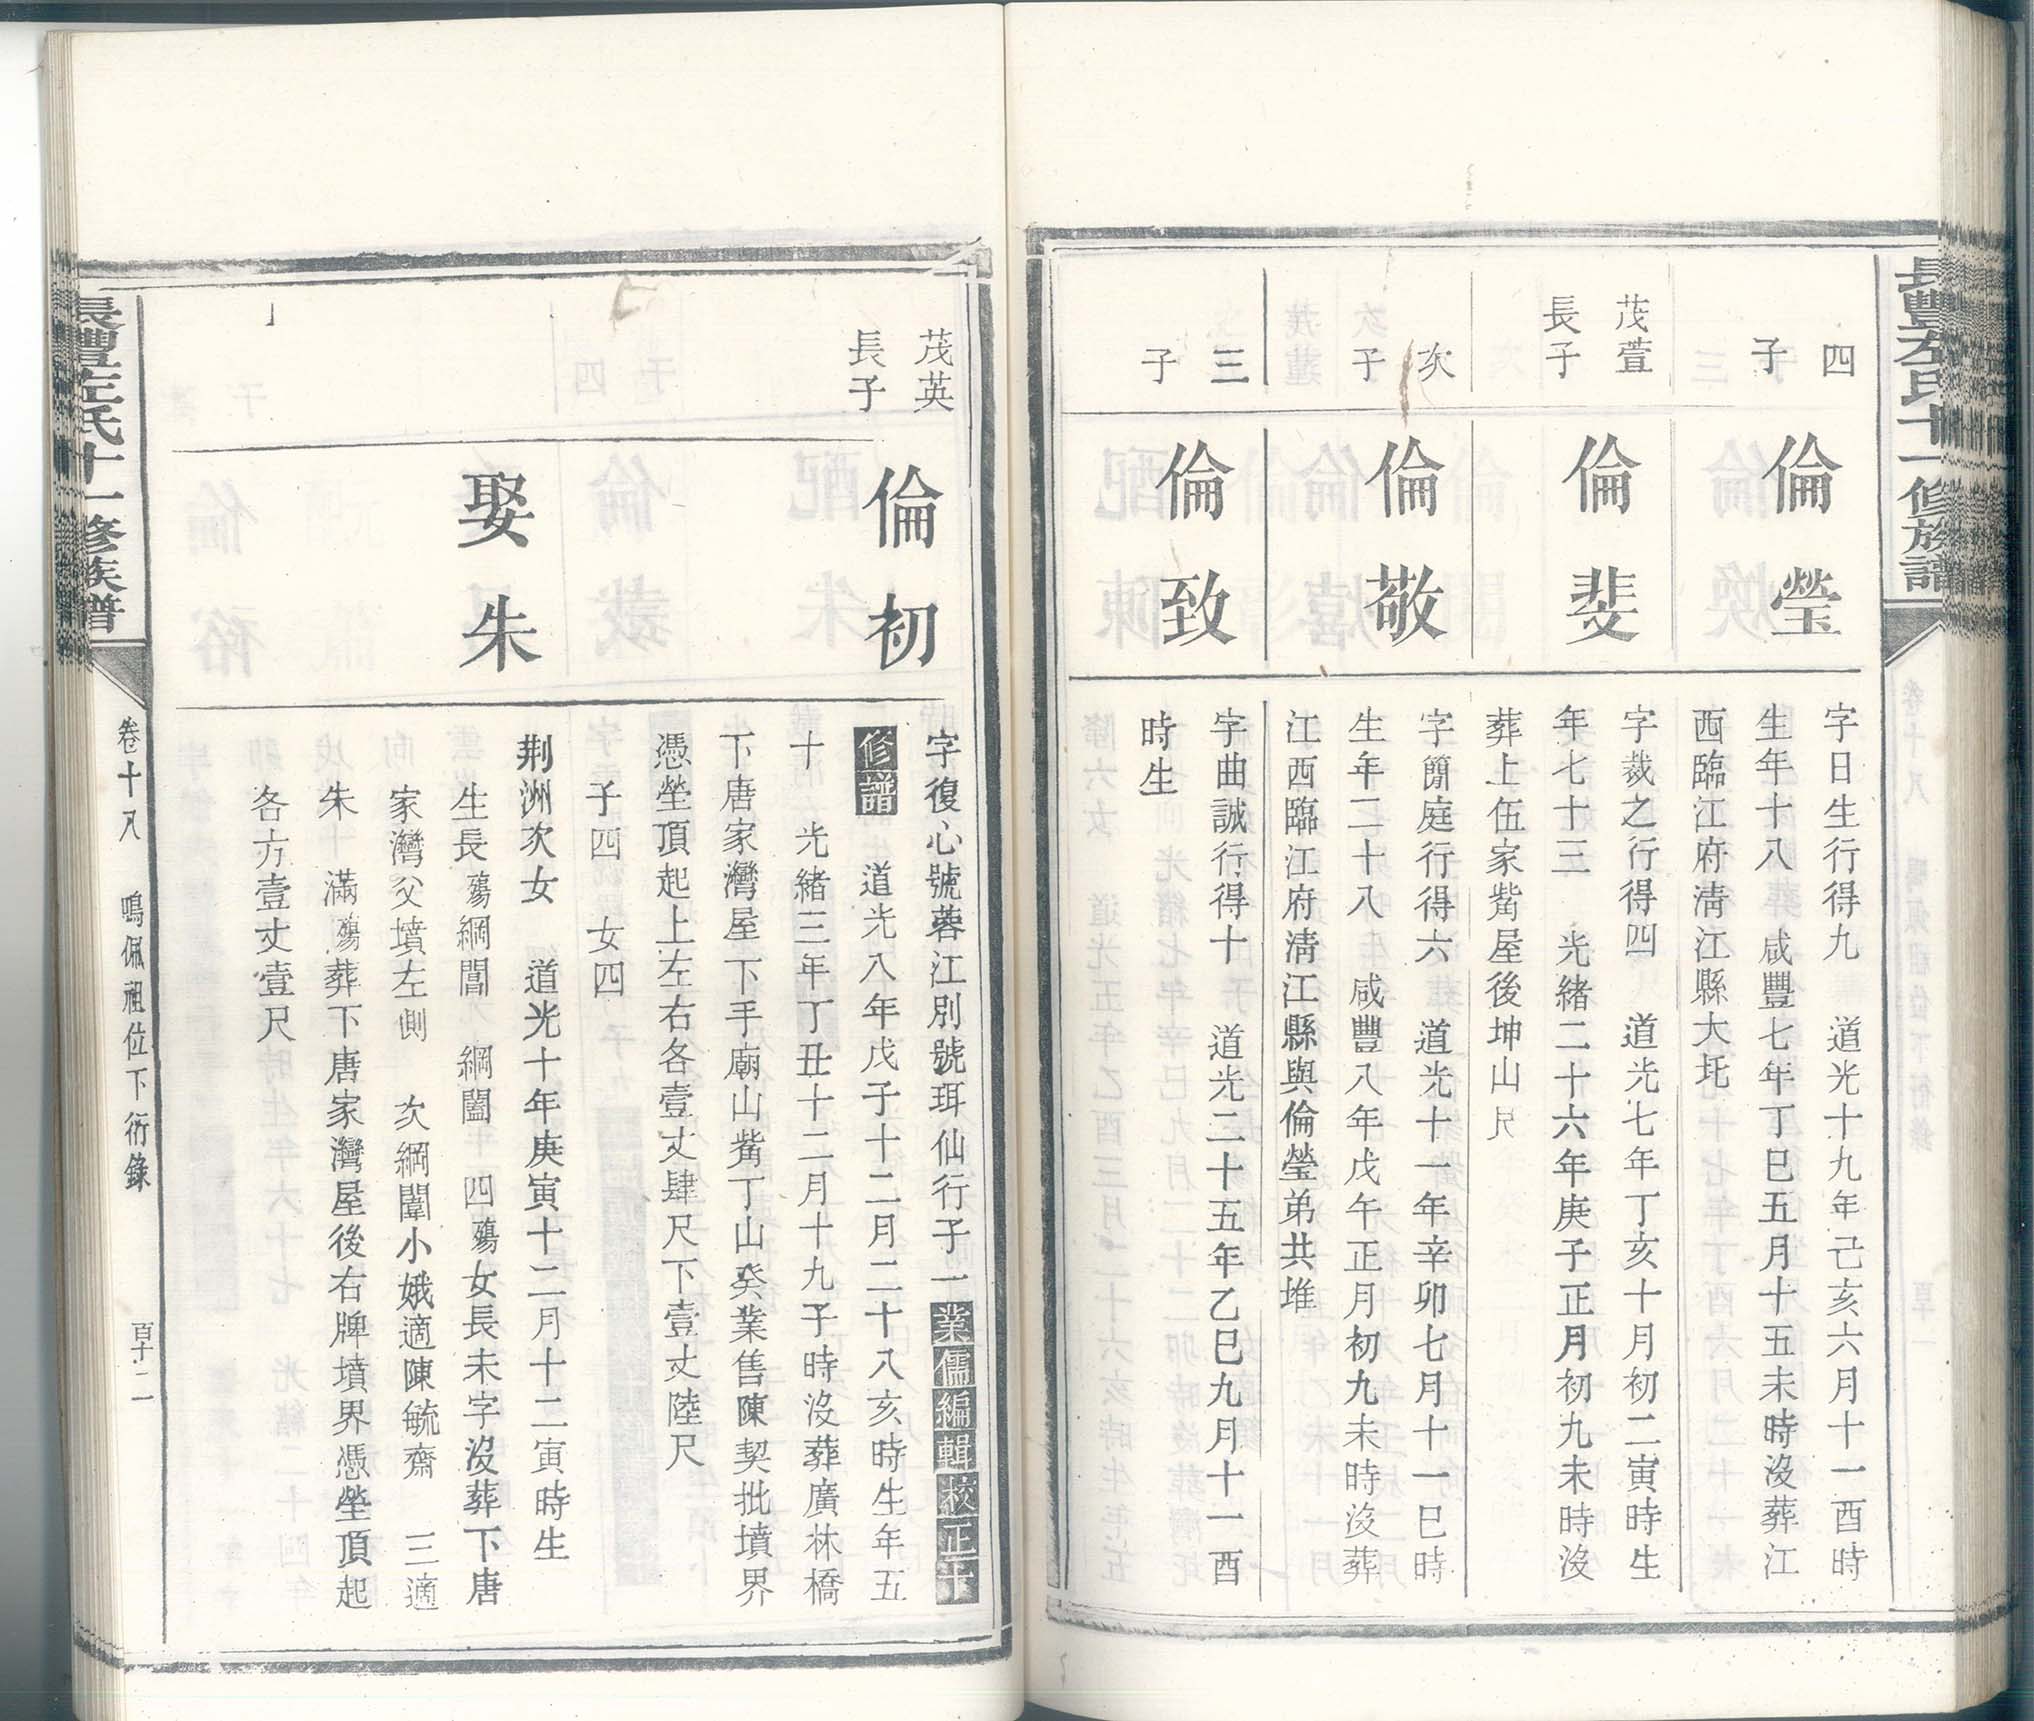 長豐左氏十一修族譜
四
子
倫瑩
字日生行得九　道光十九年己亥六月十一酉時
生年十八　咸豐七年丁巳五月十五未時沒葬江
西臨江府淸江縣大圫
茂萱
長子
倫斐
字裁之行得四　道光七年丁亥十月初二寅時生
年七十三　光緒二十六年庚子正月初九未時沒
葬上伍家觜屋後坤山尺
次
子
倫敬
字簡庭行得六　道光十一年辛卯七月十一巳時
生年二十八　咸豐八年戊午正月初九未時沒葬
江西臨江府淸江縣與倫瑩弟共堆
三
子
倫致
字曲誠行得十　道光二十五年乙巳九月十一酉
時生
茂英
長子
倫初
字復心號蓉江別號珥仙行子一業儒編輯校正十
修譜　道光八年戊子十二月二十八亥時生年五
十　光緒三年丁丑十二月十九子時沒葬廣林橋
下唐家灣屋下手廟山觜丁山癸業售陳契批墳界
憑塋頂起上左右各壹丈肆尺下壹丈陸尺
子四　女四
娶朱
荆洲次女　道光十年庚寅十二月十二寅時生
生長殤綱閶　綱闓　四殤女長未字沒葬下唐
家灣父墳左側　次綱闈小娥適陳毓齋　三適
朱　滿殤葬下唐家灣屋後右牌墳界憑塋頂起
各方壹丈壹尺
長豐左氏十一修族譜
卷十八　鳴佩祖位下衍錄　百十二